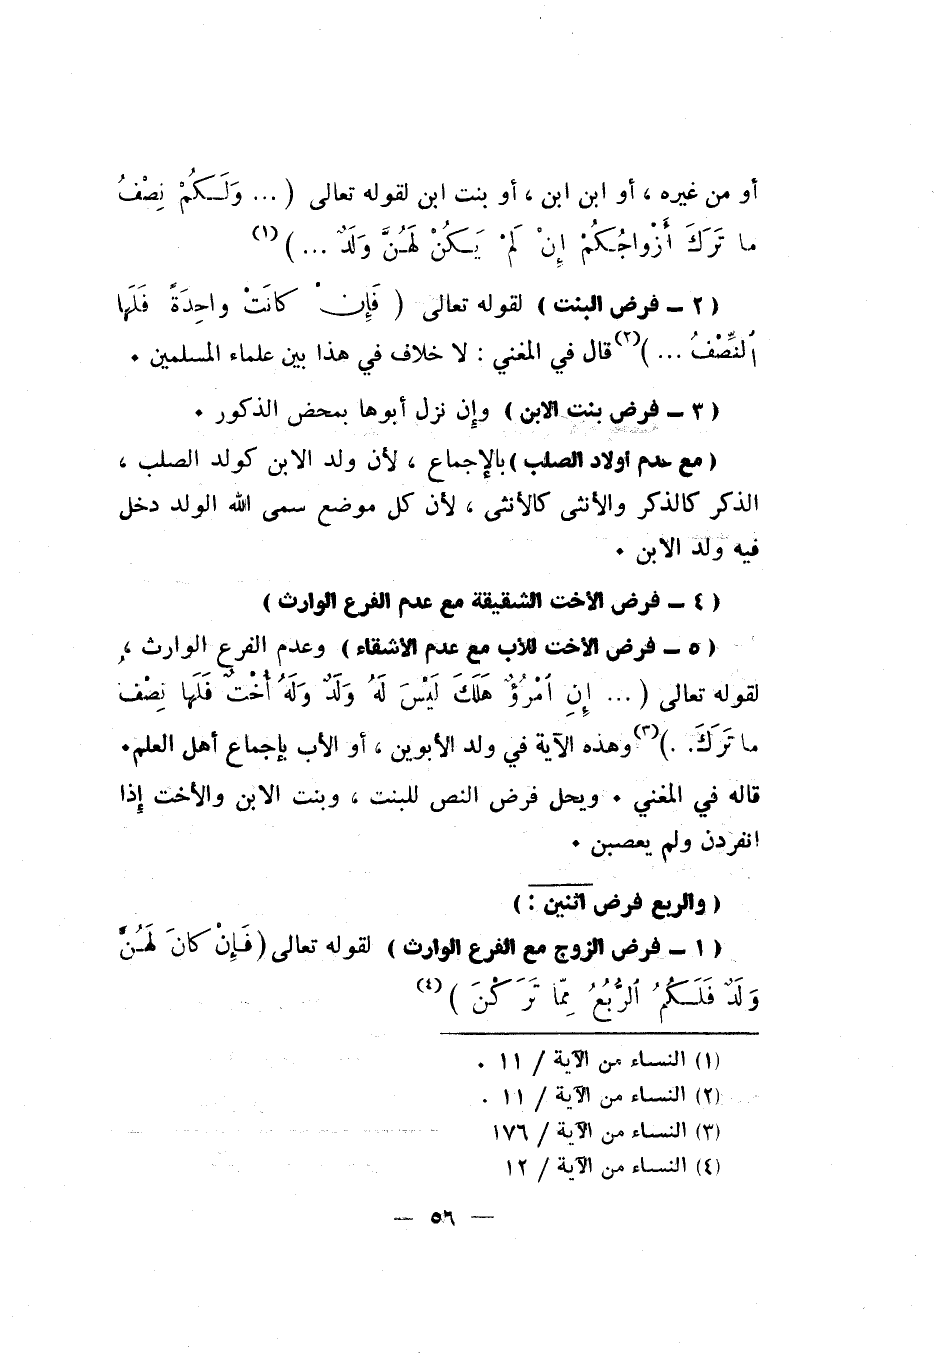 أو من غيره ، أو ابن ابن ، أو بنت ابن لقوله تعالى ( ... وَلَـكُمْ نِصْفُ
ما تَرَكَ أَزْواجُـكُمْ إِنْ لَمْ يَـكُنْ لَهُـنَّ وَلَدٌ ... )(١)
( ٢ ــ فرض البنت ) لقوله تعالى ( فَإِن كانَتْ واحِدَةً فَلَها
ٱلنِّصْفُ ... )(٢) قال في المغني : لا خلاف في هذا بين علماء المسلمين ٠
( ٣ ــ فرض بنت الابن ) وإن نزل أبوها بمحض الذكور ٠
( مع عدم أولاد الصلب ) بالإجماع ، لأن ولد الابن كولد الصلب ،
الذكر كالذكر والأنثى كالأنثى ، لأن كل موضع سمى الله الولد دخل
فيه ولد الابن ٠
( ٤ ــ فرض الأخت الشقيقة مع عدم الفرع الوارث )
( ٥ ــ فرض الأخت للأب مع عدم الأشقاء ) وعدم الفرع الوارث ،
لقوله تعالى ( ... إِنِ ٱمْرُؤٌ هَلَكَ لَيْسَ لَهُ وَلَدٌ وَلَهُ أُخْتٌ فَلَها نِصْفُ
ما تَرَكَ. .)(٣) وهذه الآية في ولد الأبوين ، أو الأب بإجماع أهل العلم٠
قاله في المغني ٠ ويحل فرض النص للبنت ، وبنت الابن والأخت إذا
انفردن ولم يعصبن ٠
( والربع فرض اثنين : )
( ١ ــ فرض الزوج مع الفرع الوارث ) لقوله تعالى ( فَـإِنْ كانَ لَهُـنَّ
وَلَدٌ فَلَـكُمُ ٱلرُّبُعُ مِمّا تَرَكْنَ )(٤)
(١) النساء من الآية / ١١ .
(٢) النساء من الآية / ١١ .
(٣) النساء من الآية / ١٧٦
(٤) النساء من الآية / ١٢
— ٥٦ —